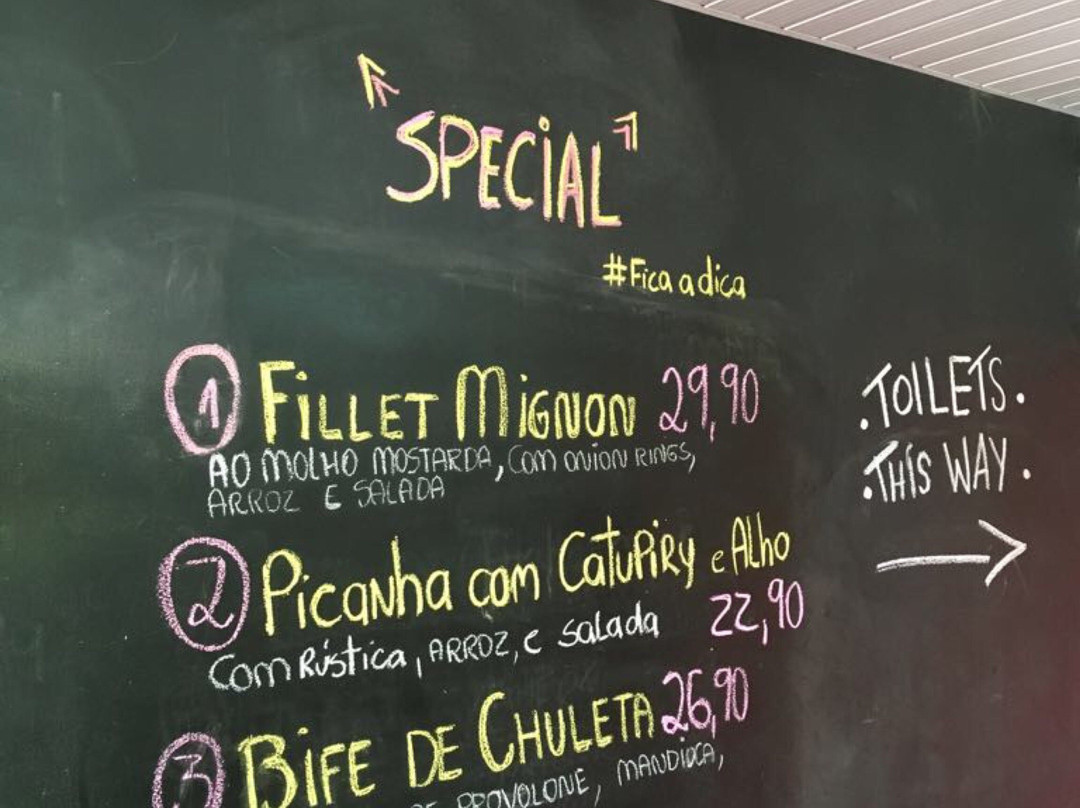 SPECIAL
#Fica a dica
1 FILLET MIGNON 29,90
AO MOLHO MOSTARDA, COM ONION RINGS,
ARROZ E SALADA
2 Picanha com CATUPIRY e Alho
Com Rústica, ARROZ, e salada 22,90
3 BIFE DE CHULETA 26,90
DE PROVOLONE, MANDIOCA,
.TOILETS.
.THIS WAY.